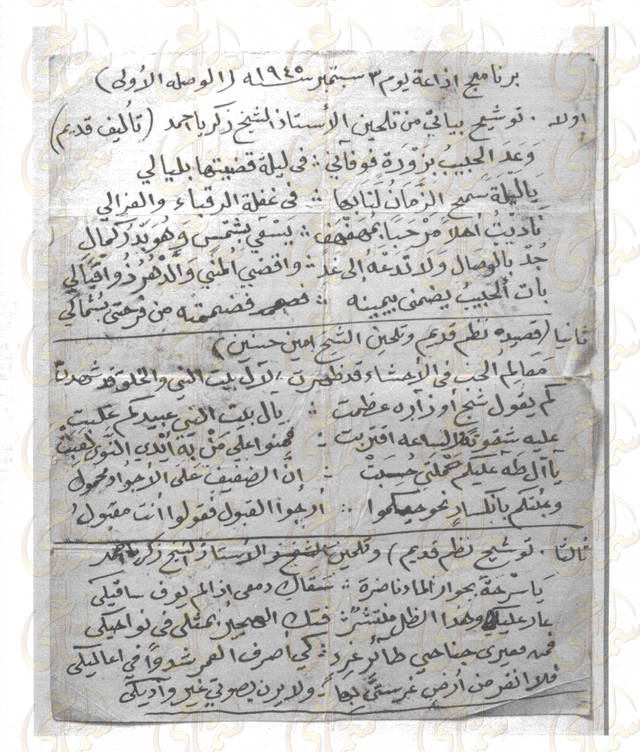 برنامج اذاعة يوم ٣ سبتمبر سنة ١٩٤٥ (الوصله الأولى)
اولا . توشيح بياتى من تلحين الأستاذ الشيخ زكريا احمد (تأليف قديم)
وَعَد الحبيبُ بزَوْرَة فوفالي ∴ فى ليلة قضيتها بليالي
يا ليلَة سمح الزمَانُ لنا بها ∴ فى غفلة الرقباء والعزالي
ناديْتُ أهلاً مرْحَباً بمُهفهف ∴ يسْعي بشمس وَهُو بدْر كمال
جُدْ بالوصال ولا تدعْهُ الى غد ∴ واقضي المُني والدهْرُ ذو اقبَالي
بات الحبيبُ يضمنى بيمينه ∴ فضممته من فرْحتى بشمالي
ثانيا (قصيده نظم قديم وتلحين الشيخ امين حسنين)
مَعَالِمُ الحب فى الأحشاء قد ظهرت ∴ لآل بيت النبي والخلق قد شهدت
كم يقول شج أوزاره عظمت ∴ يال بيت النبي عبيدكم
عليه شقوتهُ الساعه اقتربت ∴ فمنوا على منْ
يا آل طه عليكم حملتى حُسِبَتْ ∴ إنَّ الضعيف على الأجواد محمول
وجئتكم بانكسارٍ نحو حيكموا ∴ أرجوا القبول فقولوا أنت مقبول
ثالثا . توشيح نظم قديم) وتلحين الأستاذ الشيخ زكريا احمد
يَا سرْحَة بجوار الماء ناضرة ∴ سقاكِ دمعى اذا لم يوف ساقيكى
عار عليكِ وهذا الظل منتشرٌ ∴ فتك الهجير بمثلى فى نواحيكى
فمن معيرى جناحي طائرٍ غرِد ∴ كي أصرف العمر شدواً فى اعاليكى
فلا انفر من أرضٍ غرستى بها ∴ ولا يرن بصوتي غير واديكى